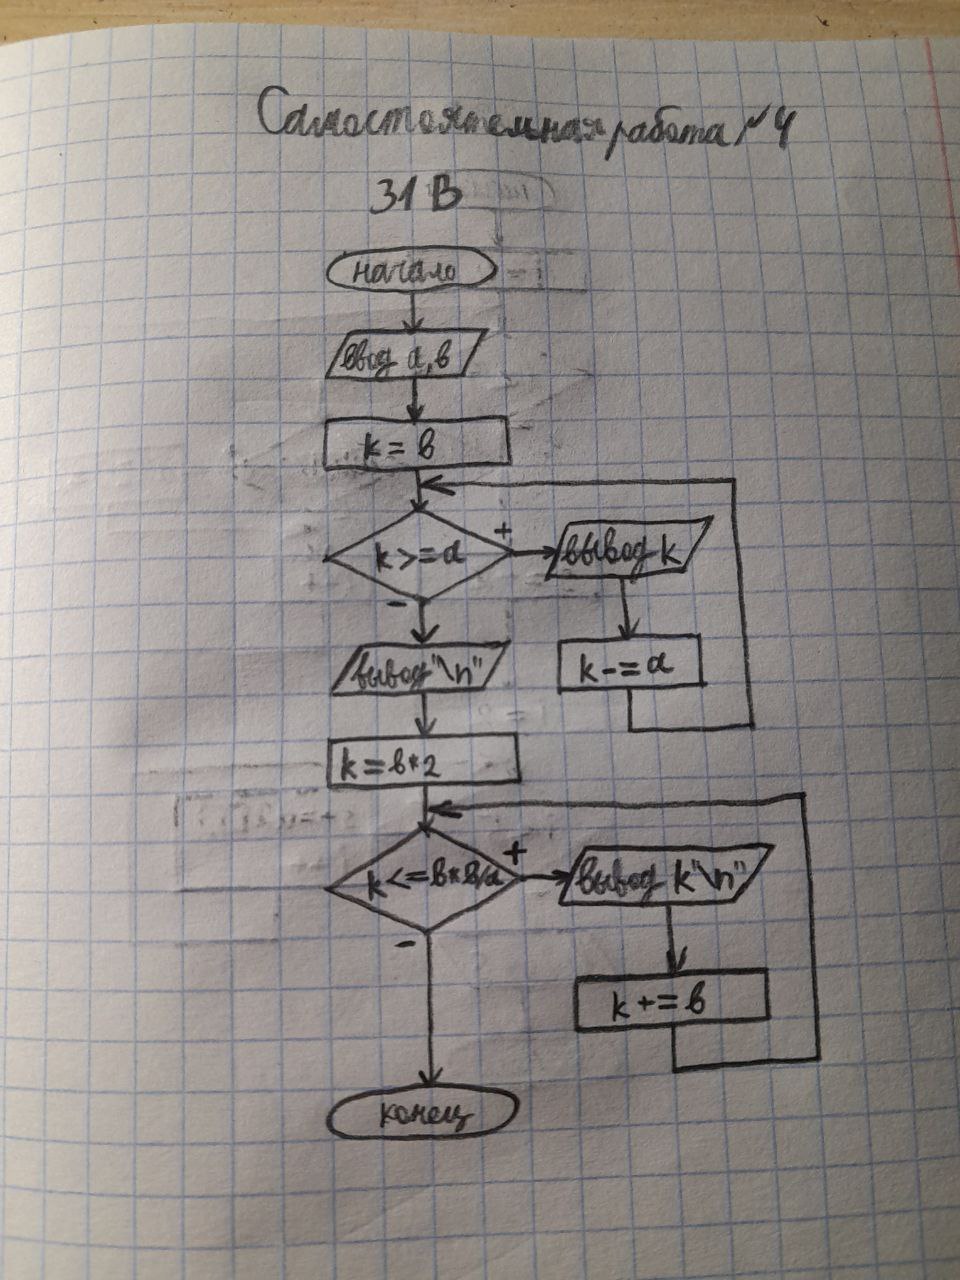 Самостоятельная работа №4
31 В
начало
ввод a, в
k = в
k >= a
+
вывод k
-
k -= a
вывод "\n"
k = в*2
k <= в*в/a
+
вывод k "\n"
-
k += в
конец